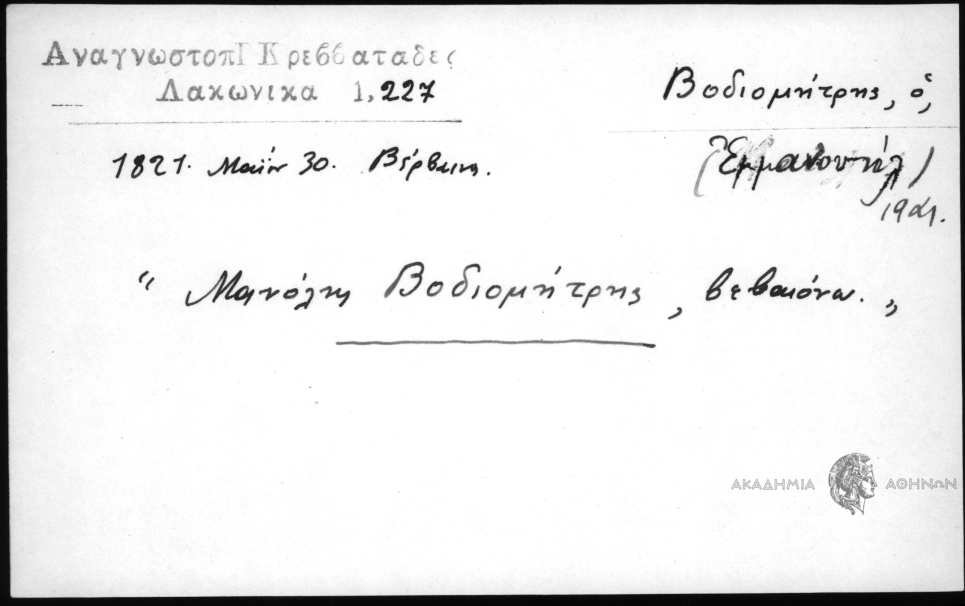 ΑναγνωστοπΓ Κρεββαταδες
Λακωνικα 1,227
Βοδιομήτρης, ὁ,
1821. Μαΐου 30. Βέρβαινα.
(Ἐμμανουήλ)
" Μανόλης Βοδιομήτρης, βεβαιόνω. "
ΑΚΑΔΗΜΙΑ ΑΘΗΝΩΝ